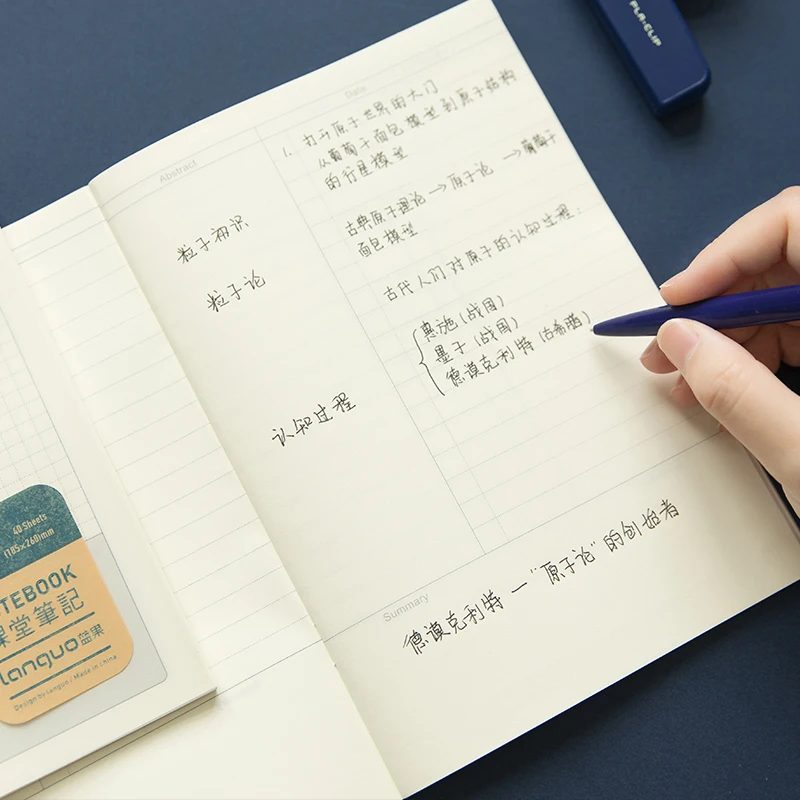 PLA-CLIP
Date
1. 打开原子世界的大门
从葡萄干面包模型到原子结构
的行星模型
古典原子理论→原子论 →葡萄干
面包模型
古代人们对原子的认知过程:
惠施(战国)
墨子(战国)
德谟克利特(古希腊)
Abstract
粒子初识
粒子论
认知过程
Summary
德谟克利特一"原子论"的创始者
40 Sheets
(185×260)mm
NOTEBOOK
課堂筆記
languo蓝果
Design by languo / Made in china